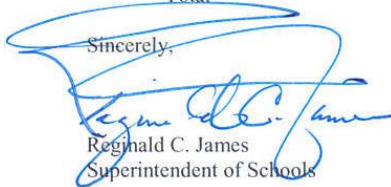 Sincerely,
Reginald C. James
Reginald C. James
Superintendent of Schools